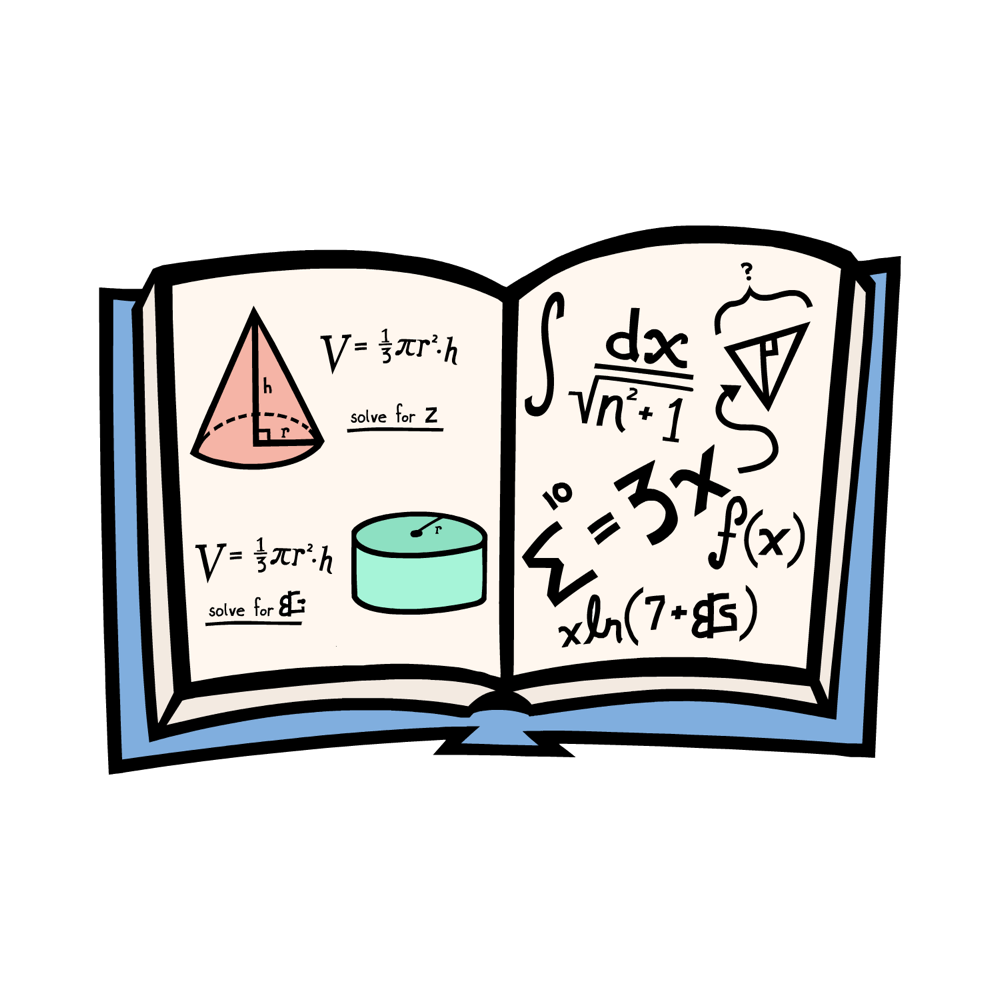 V = 1/3 πr²·h
h
r
solve for z
r
V = 1/3 πr²·h
solve for
?
∫ dx
√n²+1
10
Σ = 3x
f(x)
x ln(7+